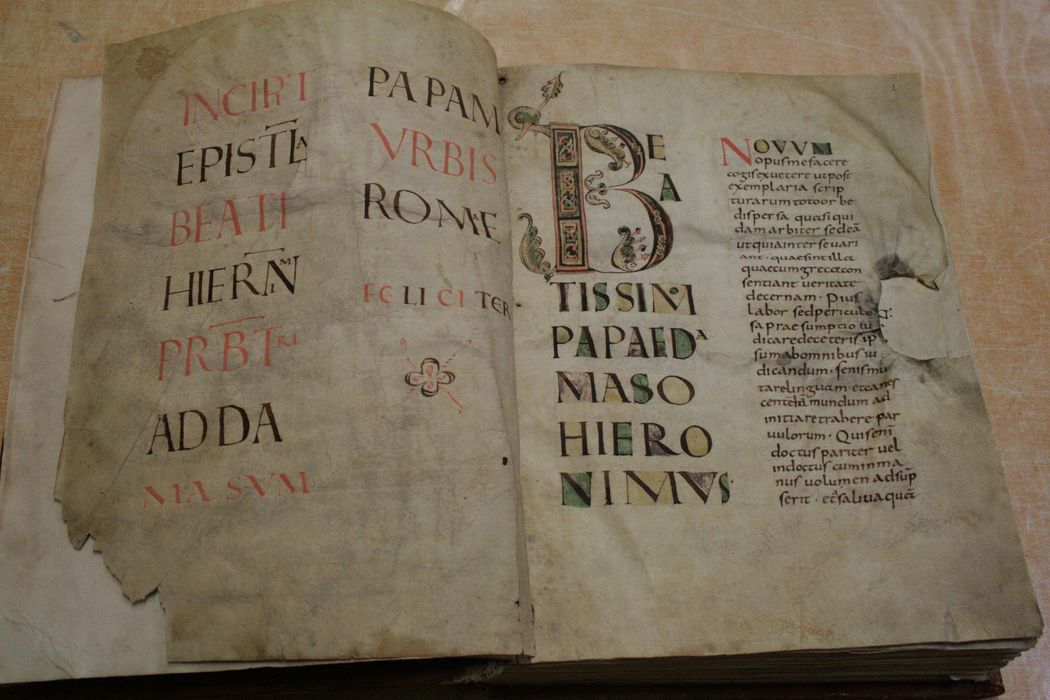 INCIPT
EPISTLA
BEATI
HIERNM
PRBTRI
AD DA
MASUM
PAPAM
VRBIS
ROMAE
FELICITER
BEA
TISSIM
PAPAE DA
MASO
HIERO
NIMVS
NOVVM
opus me facere
cogis ex vetere ut post
exemplaria scrip
turarum toto or be
dispersa quasi qui
dam arbiter sedeā
ut qui a inter se vari
ant · quae sint illa
quae cum greca con
sentiant veritate
decernam · Pius
labor sed periculo
sa prae sumptio iu
dicare de ceteris ip
sum ab omnibus iu
dicandum · senis mu
tare linguam · et canes
centem mundum ad
initia retrahere par
vulorum · Quis eni
doctus pariter vel
indoctus cum in ma
nus volumen adsūp
serit · et saliva quā